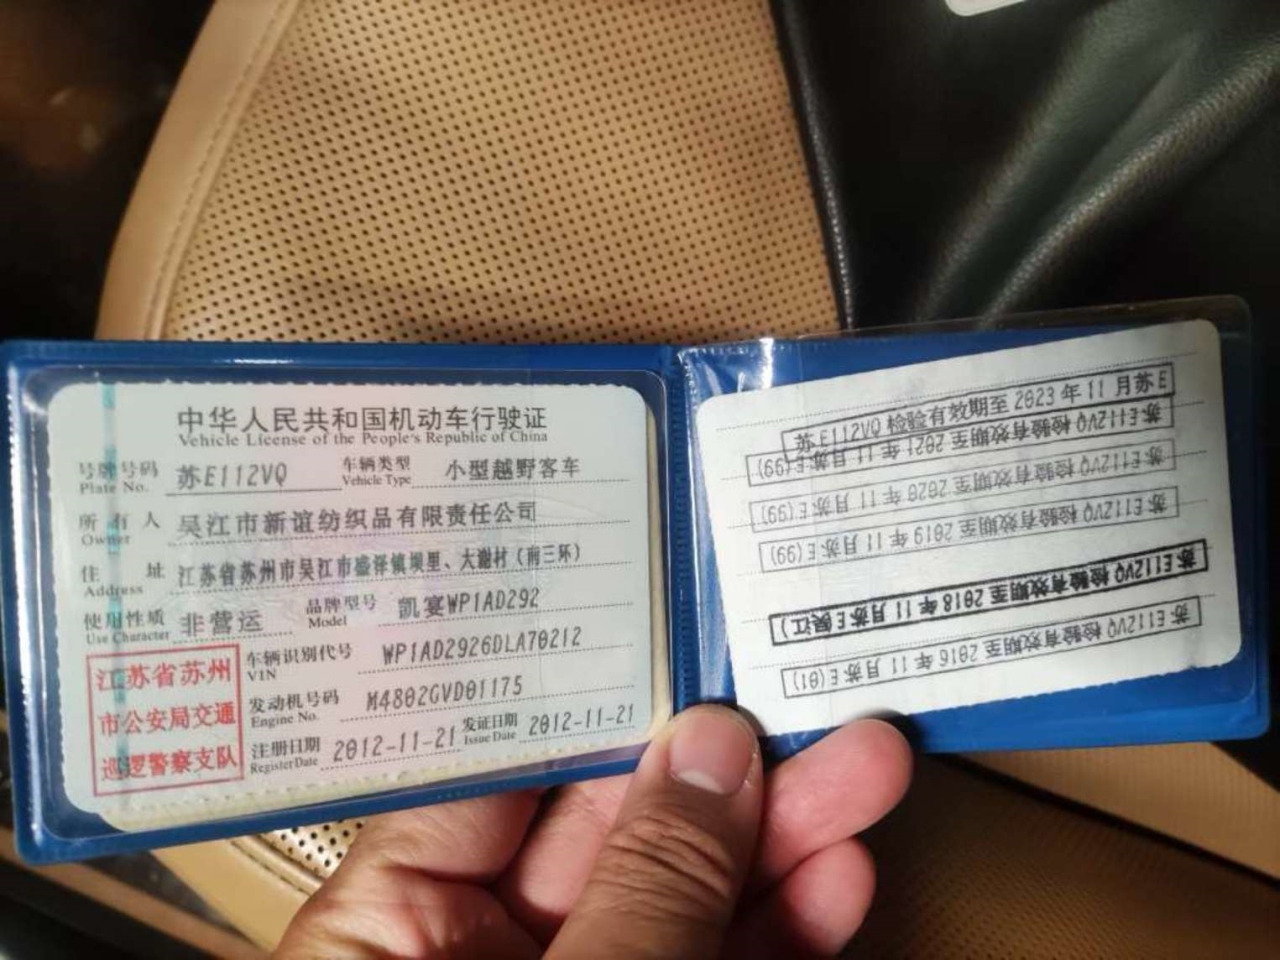 中华人民共和国机动车行驶证
Vehicle License of the People's Republic of China
号牌号码 苏E112VQ 车辆类型 小型越野客车
Plate No. Vehicle Type
所有人 吴江市新谊纺织品有限责任公司
Owner
住址 江苏省苏州市吴江市盛泽镇坝里、大谢村(南三环)
Address
使用性质 非营运 品牌型号 凯宴WP1AD292
Use Character Model
车辆识别代号 WP1AD2926DLA70212
VIN
发动机号码 M4802GVD01175
Engine No.
注册日期 2012-11-21 发证日期 2012-11-21
Register Date Issue Date
江苏省苏州
市公安局交通
巡逻警察支队
苏E112VQ 检验有效期至 2023 年 11 月苏E
苏E112VQ 检验有效期至 2021 年 11 月苏E(99)
苏E112VQ 检验有效期至 2020 年 11 月苏E(99)
苏E112VQ 检验有效期至 2019 年 11 月苏E(99)
苏E112VQ 检验有效期至 2018 年 11 月苏E(吴江)
苏E112VQ 检验有效期至 2016 年 11 月苏E(01)